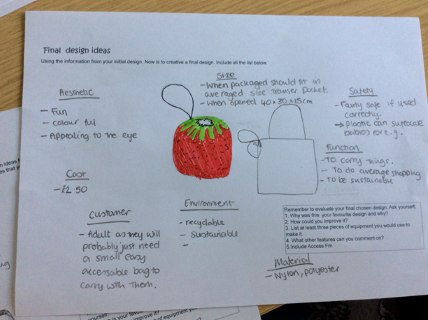 Final design ideas
Using the information from your initial design. Now is to creative a final design. Include all the list below.
Aesthetic
- Fun
- colour ful
- Appealing to the eye
Cost
- £2.50
Customer
- Adult as they will
probably just need
a small easy
accessable bag to
carry with them.
Size
- When packaged should fit in
averaged size trouser pocket.
- When opened 40 x 30 x 15cm
Environment
- recyclable
- Sustainable
-
Safety
- Fairly safe if used
correctly.
→ Plastic can suffocate
babies for e.g.
Function
- To carry things.
- To do average shopping
- To be sustainable
Remember to evaluate your final chosen design. Ask yourself;
1. Why was this your favourite design and why?
2. How could you improve it?
3. List at least three pieces of equipment you would use to
make it.
4. What other features can you comment on?
5. Include Access Fm
Material
- Nylon, polyester